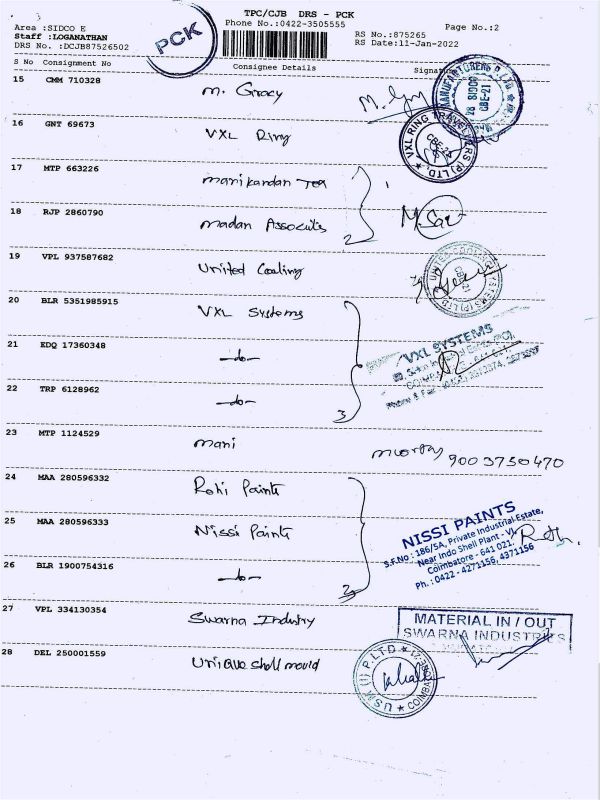 TPC/CJB DRS - PCK
Area :SIDCO E
Phone No.:0422-3505555
Page No.:2
Staff :LOGANATHAN
RS No.:875265
DRS No. :DCJB87526502
RS Date:11-Jan-2022
PCK
S No Consignment No Consignee Details Signature
15 CMM 710328 M. Gracy
16 GNT 69673 VXL Ring
VXL RING TRAVELLERS (P) LTD.
17 MTP 663226 Manikandan Tea
18 RJP 2860790 Madan Associates
2
19 VPL 937587682 United Cooling
20 BLR 5351985915 VXL Systems
21 EDQ 17360348 -do-
VXL SYSTEMS
22 TRP 6128962 -do-
3
23 MTP 1124529 Mani
Moorthy 9003750470
24 MAA 280596332 Rohi Paints
25 MAA 280596333 Nissi Paints
NISSI PAINTS
S.F.No : 186/5A, Private Industrial Estate,
Near Indo Shell Plant - VI,
Coimbatore - 641 021.
Ph. : 0422 - 4271156, 4371156
26 BLR 1900754316 -do-
2
27 VPL 334130354 Swarna Industry
MATERIAL IN / OUT
SWARNA INDUSTRIES
28 DEL 250001559 Unique shell mould
USM (I) P.LTD